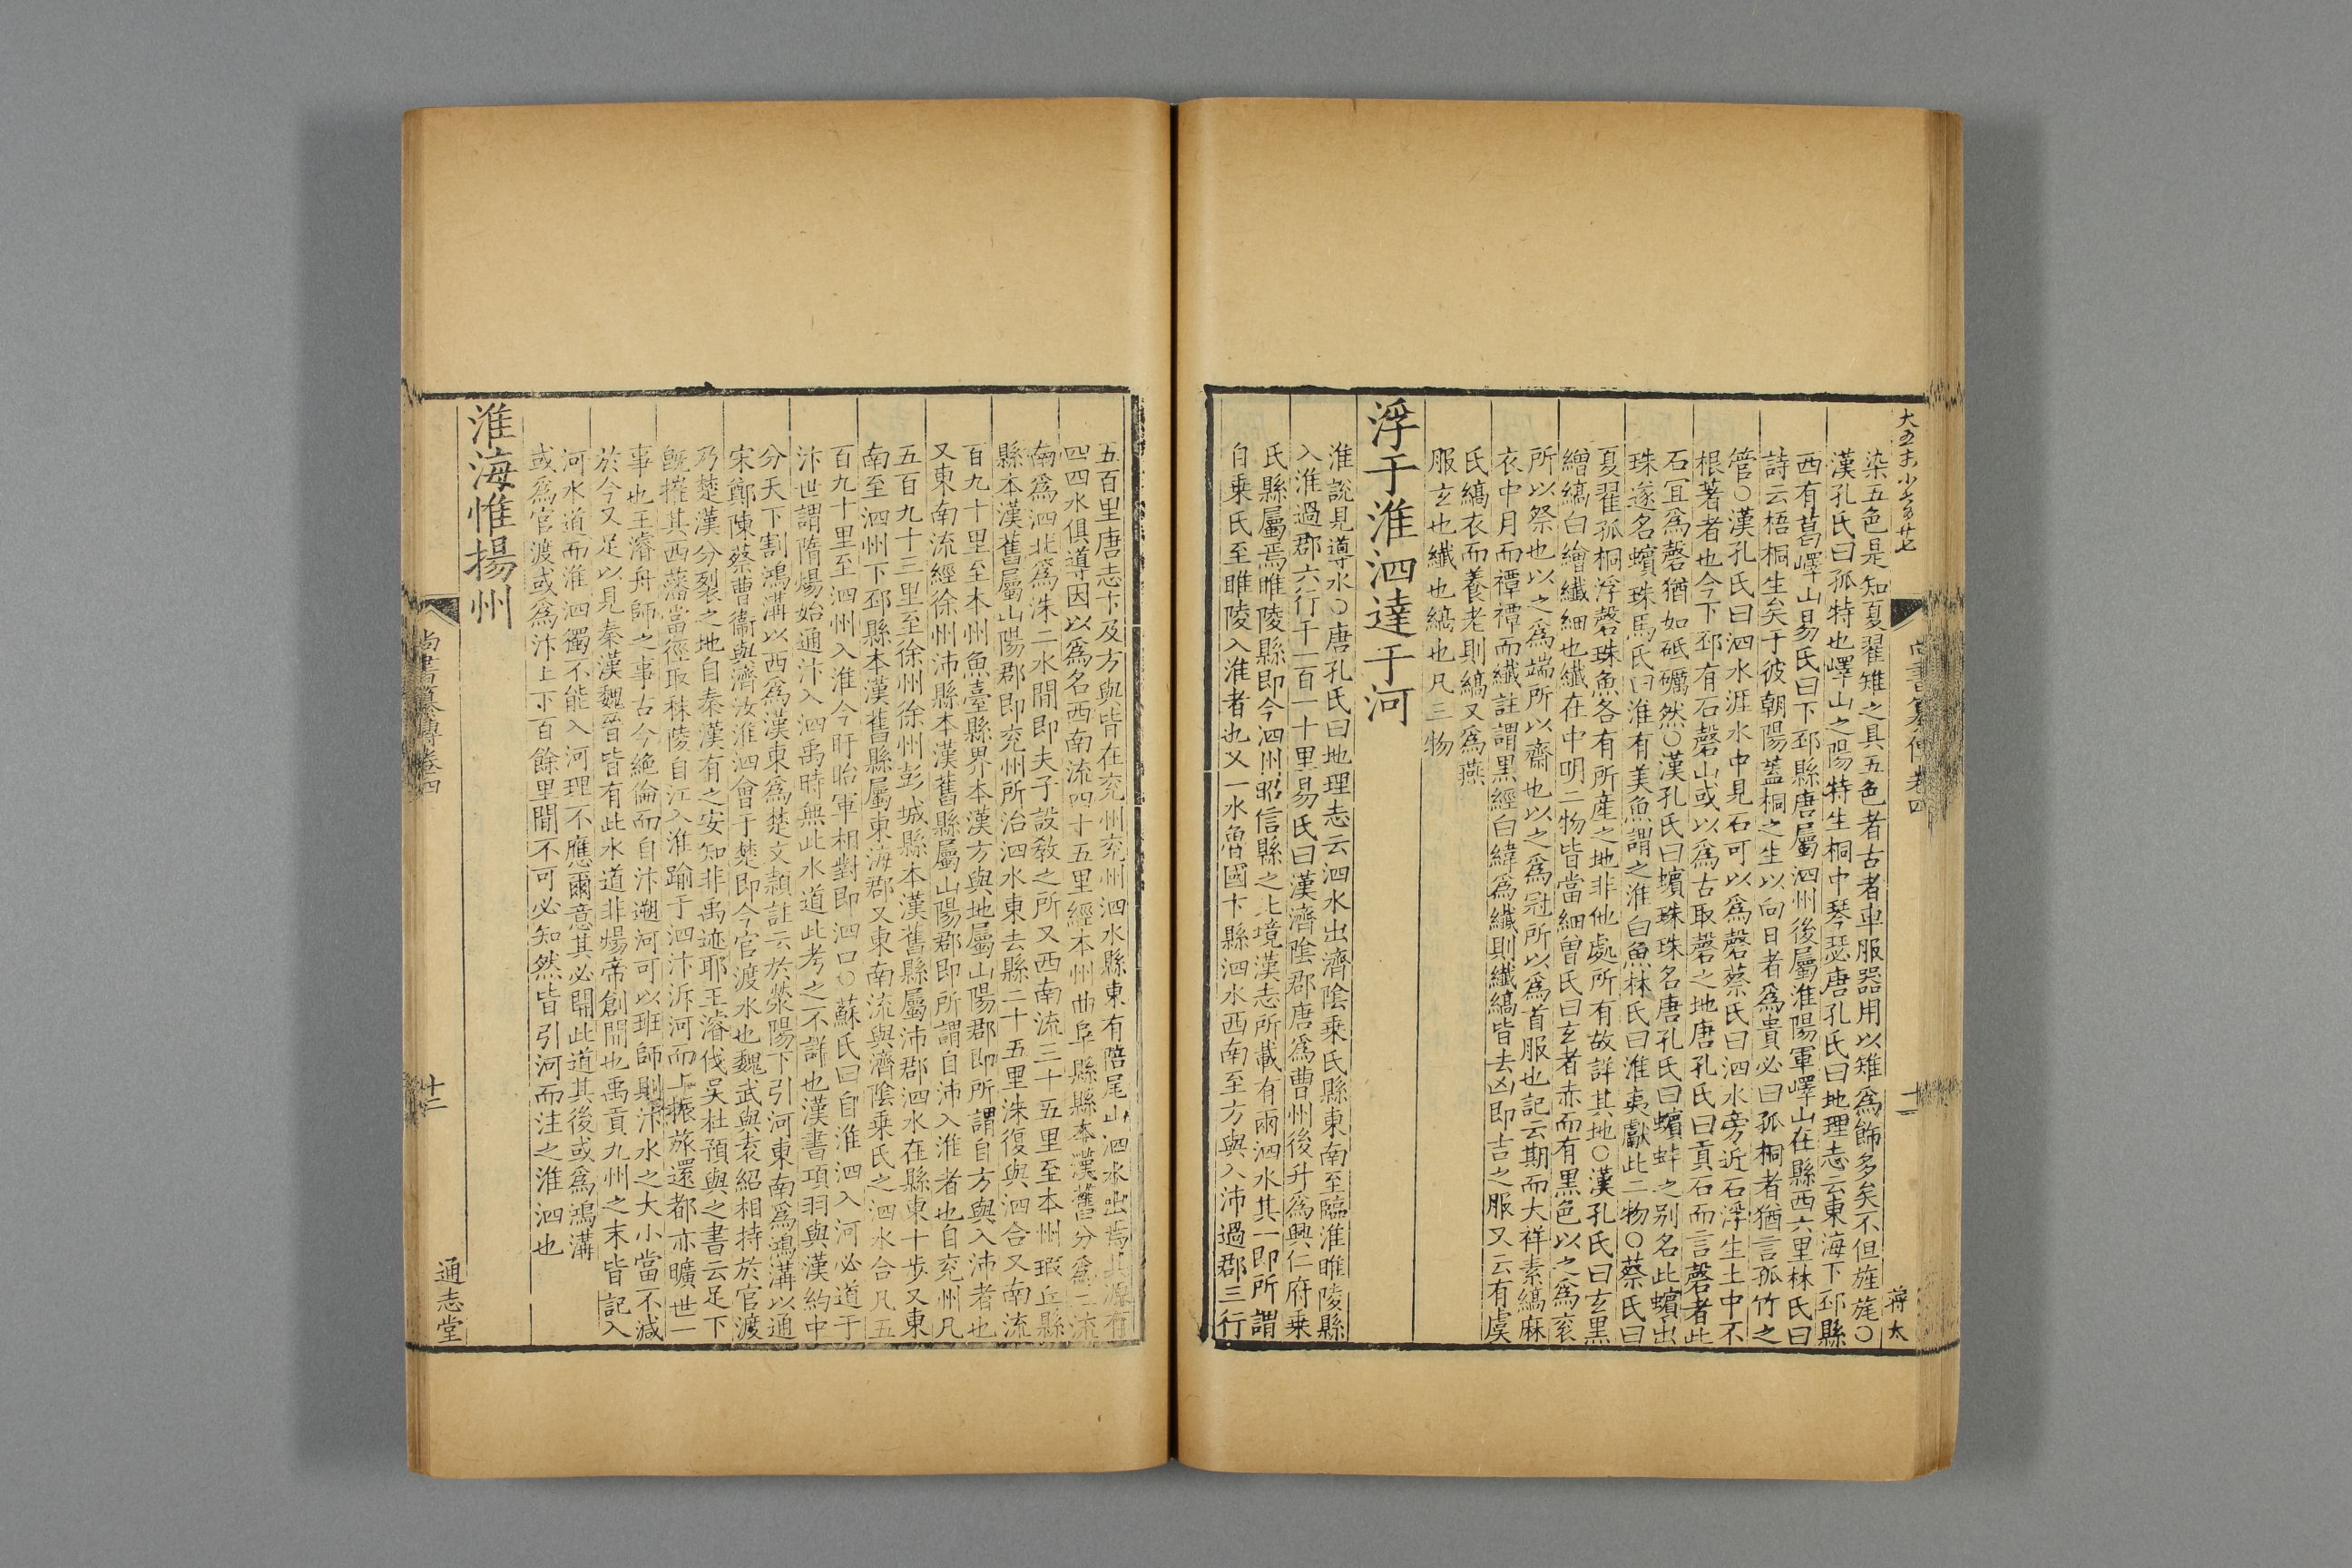 大五十 小六百廿七
尚書纂傳卷四
十二
蔣太
染五色是知夏翟雉之具五色者古者車服器用以雉爲飾多矣不但旌旄○
漢孔氏曰孤特也嶧山之陽特生桐中琴瑟唐孔氏曰地理志云東海下邳縣
西有葛嶧山易氏曰下邳縣唐屬泗州後屬淮陽軍嶧山在縣西六里林氏曰
詩云梧桐生矣于彼朝陽蓋桐之生以向日者爲貴必曰孤桐者猶言孤竹之
管○漢孔氏曰泗水涯水中見石可以爲磬蔡氏曰泗水旁近石浮生土中不
根著者也今下邳有石磬山或以爲古取磬之地唐孔氏曰貢石而言磬者此
石宜爲磬猶如砥礪然○漢孔氏曰蠙珠珠名唐孔氏曰蠙蚌之别名此蠙出
珠遂名蠙珠馬氏曰淮有美魚謂之淮白魚林氏曰淮夷獻此二物○蔡氏曰
夏翟孤桐浮磬珠魚各有所產之地非他處所有故詳其地○漢孔氏曰玄黑
繒縞白繒纖細也纖在中明二物皆當細曾氏曰玄者赤而有黑色以之爲衮
所以祭也以之爲端所以齋也以之爲冠所以爲首服也記云期而大祥素縞麻
衣中月而禫禫而纖註謂黑經白緯爲纖則纖縞皆去凶即吉之服又云有虞
氏縞衣而養老則縞又爲燕
服玄也纖也縞也凡三物
浮于淮泗達于河
淮說見導水○唐孔氏曰地理志云泗水出濟陰乗氏縣東南至臨淮睢陵縣
入淮過郡六行千一百一十里易氏曰漢濟陰郡唐爲曹州後升爲興仁府乗
氏縣屬焉睢陵縣即今泗州昭信縣之北境漢志所載有兩泗水其一即所謂
自乗氏至睢陵入淮者也又一水魯國卞縣泗水西南至方與入沛過郡三行
五百里唐志卞及方與皆在兖州兖州泗水縣東有陪尾山泗水出焉其源有
四四水俱導因以爲名西南流四十五里經本州曲阜縣縣本漢舊分爲二流
南爲泗北爲洙二水閒即夫子設教之所又西南流三十五里至本州瑕丘縣
縣本漢舊屬山陽郡即兖州所治泗水東去縣二十五里洙復與泗合又南流
百九十里至本州魚臺縣界本漢方與地屬山陽郡即所謂自方與入沛者也
又東南流經徐州沛縣本漢舊縣屬山陽郡即所謂自沛入淮者也自兖州凡
五百九十三里至徐州徐州彭城縣本漢舊縣屬沛郡泗水在縣東十步又東
南至泗州下邳縣本漢舊縣屬東海郡又東南流與濟陰乗氏之泗水合凡五
百九十里至泗州入淮今盱眙軍相對即泗口○蘇氏曰自淮泗入河必道于
汴世謂隋煬始通汴入泗禹時無此水道此考之不詳也漢書項羽與漢約中
分天下割鴻溝以西爲漢東爲楚文頴註云於滎陽下引河東南爲鴻溝以通
宋鄭陳蔡曹衞與濟汝淮泗會于楚即今官渡水也魏武與袁紹相持於官渡
乃楚漢分裂之地自秦漢有之安知非禹迹耶王濬伐吴杜預與之書云足下
旣摧其西藩當徑取秣陵自江入淮踰于泗汴泝河而上振旅還都亦曠世一
事也王濬舟師之事古今絶倫而自汴遡河可以班師則汴水之大小當不減
於今又足以見秦漢魏晉皆有此水道非煬帝創開也禹貢九州之末皆記入
河水道而淮泗獨不能入河理不應爾意其必開此道其後或爲鴻溝
或爲官渡或爲汴上下百餘里閒不可必知然皆引河而注之淮泗也
淮海惟揚州
尚書纂傳卷四
十二
通志堂